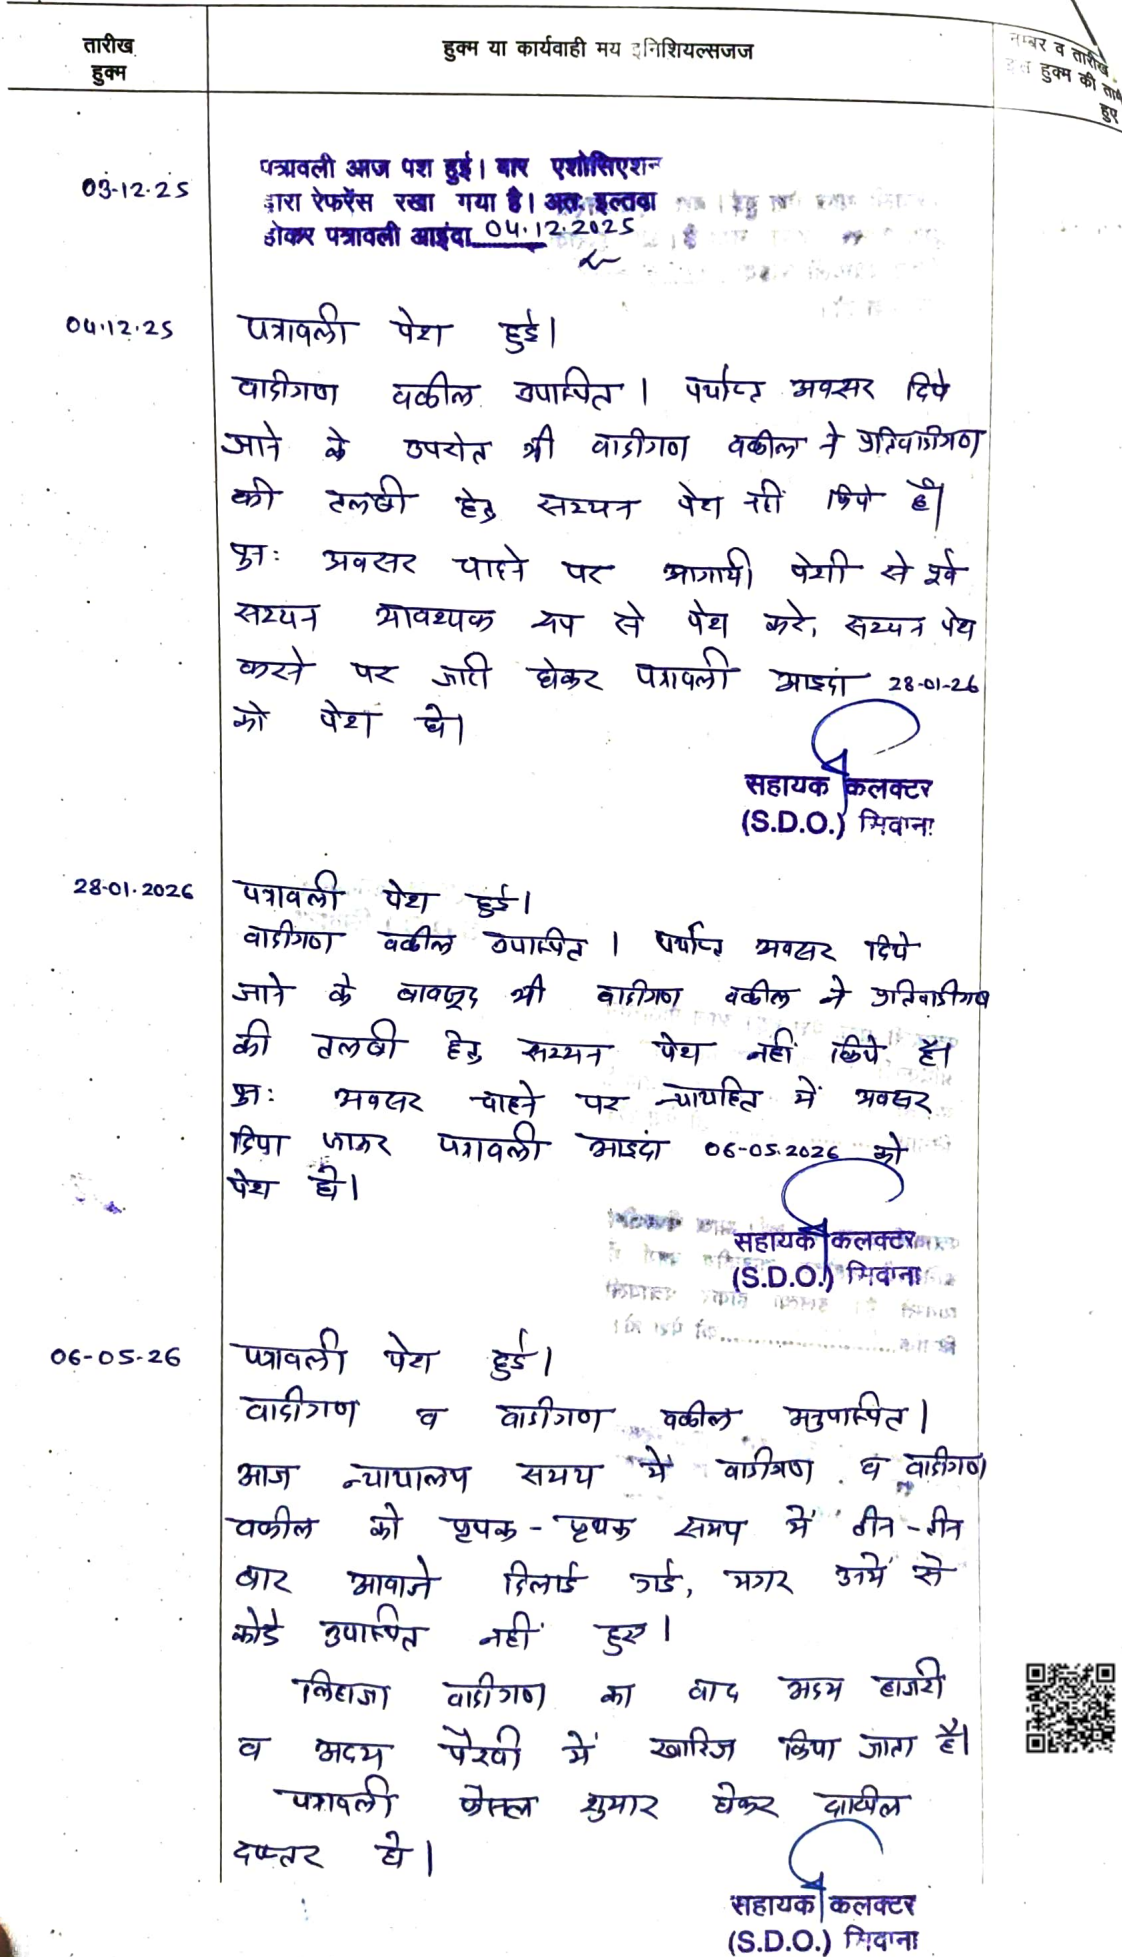 तारीख हुक्म
हुक्म या कार्यवाही मय इनिशियल्सजज
नम्बर व तारीख
हुक्म की
हुए
03-12-25
पत्रावली आज पेश हुई। बार एशोसिएशन
द्वारा रेफरेंस रखा गया है। अतः इल्तवा
होकर पत्रावली आइंदा 04.12.2025
04.12.25
पत्रावली पेश हुई।
वादीगण वकील उपस्थित। पर्याप्त अवसर दिये
जाने के उपरांत भी वादीगण वकील ने प्रतिवादीगण
की तलबी हेतु सम्मन पेश नहीं किये है।
पुनः अवसर चाहने पर आगामी पेशी से पूर्व
सम्मन आवश्यक रूप से पेश करे, सम्मन पेश
करने पर जारी होकर पत्रावली आइंदा 28-01-26
को पेश हो।
सहायक कलक्टर
(S.D.O.) सिवाना
28-01-2026
पत्रावली पेश हुई।
वादीगण वकील उपस्थित। पर्याप्त अवसर दिये
जाने के बावजूद भी वादीगण वकील ने प्रतिवादीगण
की तलबी हेतु सम्मन पेश नहीं किये है।
पुनः अवसर चाहने पर न्यायहित में अवसर
दिया जाकर पत्रावली आइंदा 06-05-2026 को
पेश हो।
सहायक कलक्टर
(S.D.O.) सिवाना
06-05-26
पत्रावली पेश हुई।
वादीगण व वादीगण वकील अनुपस्थित।
आज न्यायालय समय में वादीगण व वादीगण
वकील को पृथक-पृथक समय में तीन-तीन
बार आवाजे दिलाई गई, मगर उनमें से
कोई उपस्थित नहीं हुए।
लिहाजा वादीगण का वाद अदम हाजरी
व अदम पैरवी में खारिज किया जाता है।
पत्रावली फैसल शुमार होकर दाखिल
दफ्तर हो।
सहायक कलक्टर
(S.D.O.) सिवाना